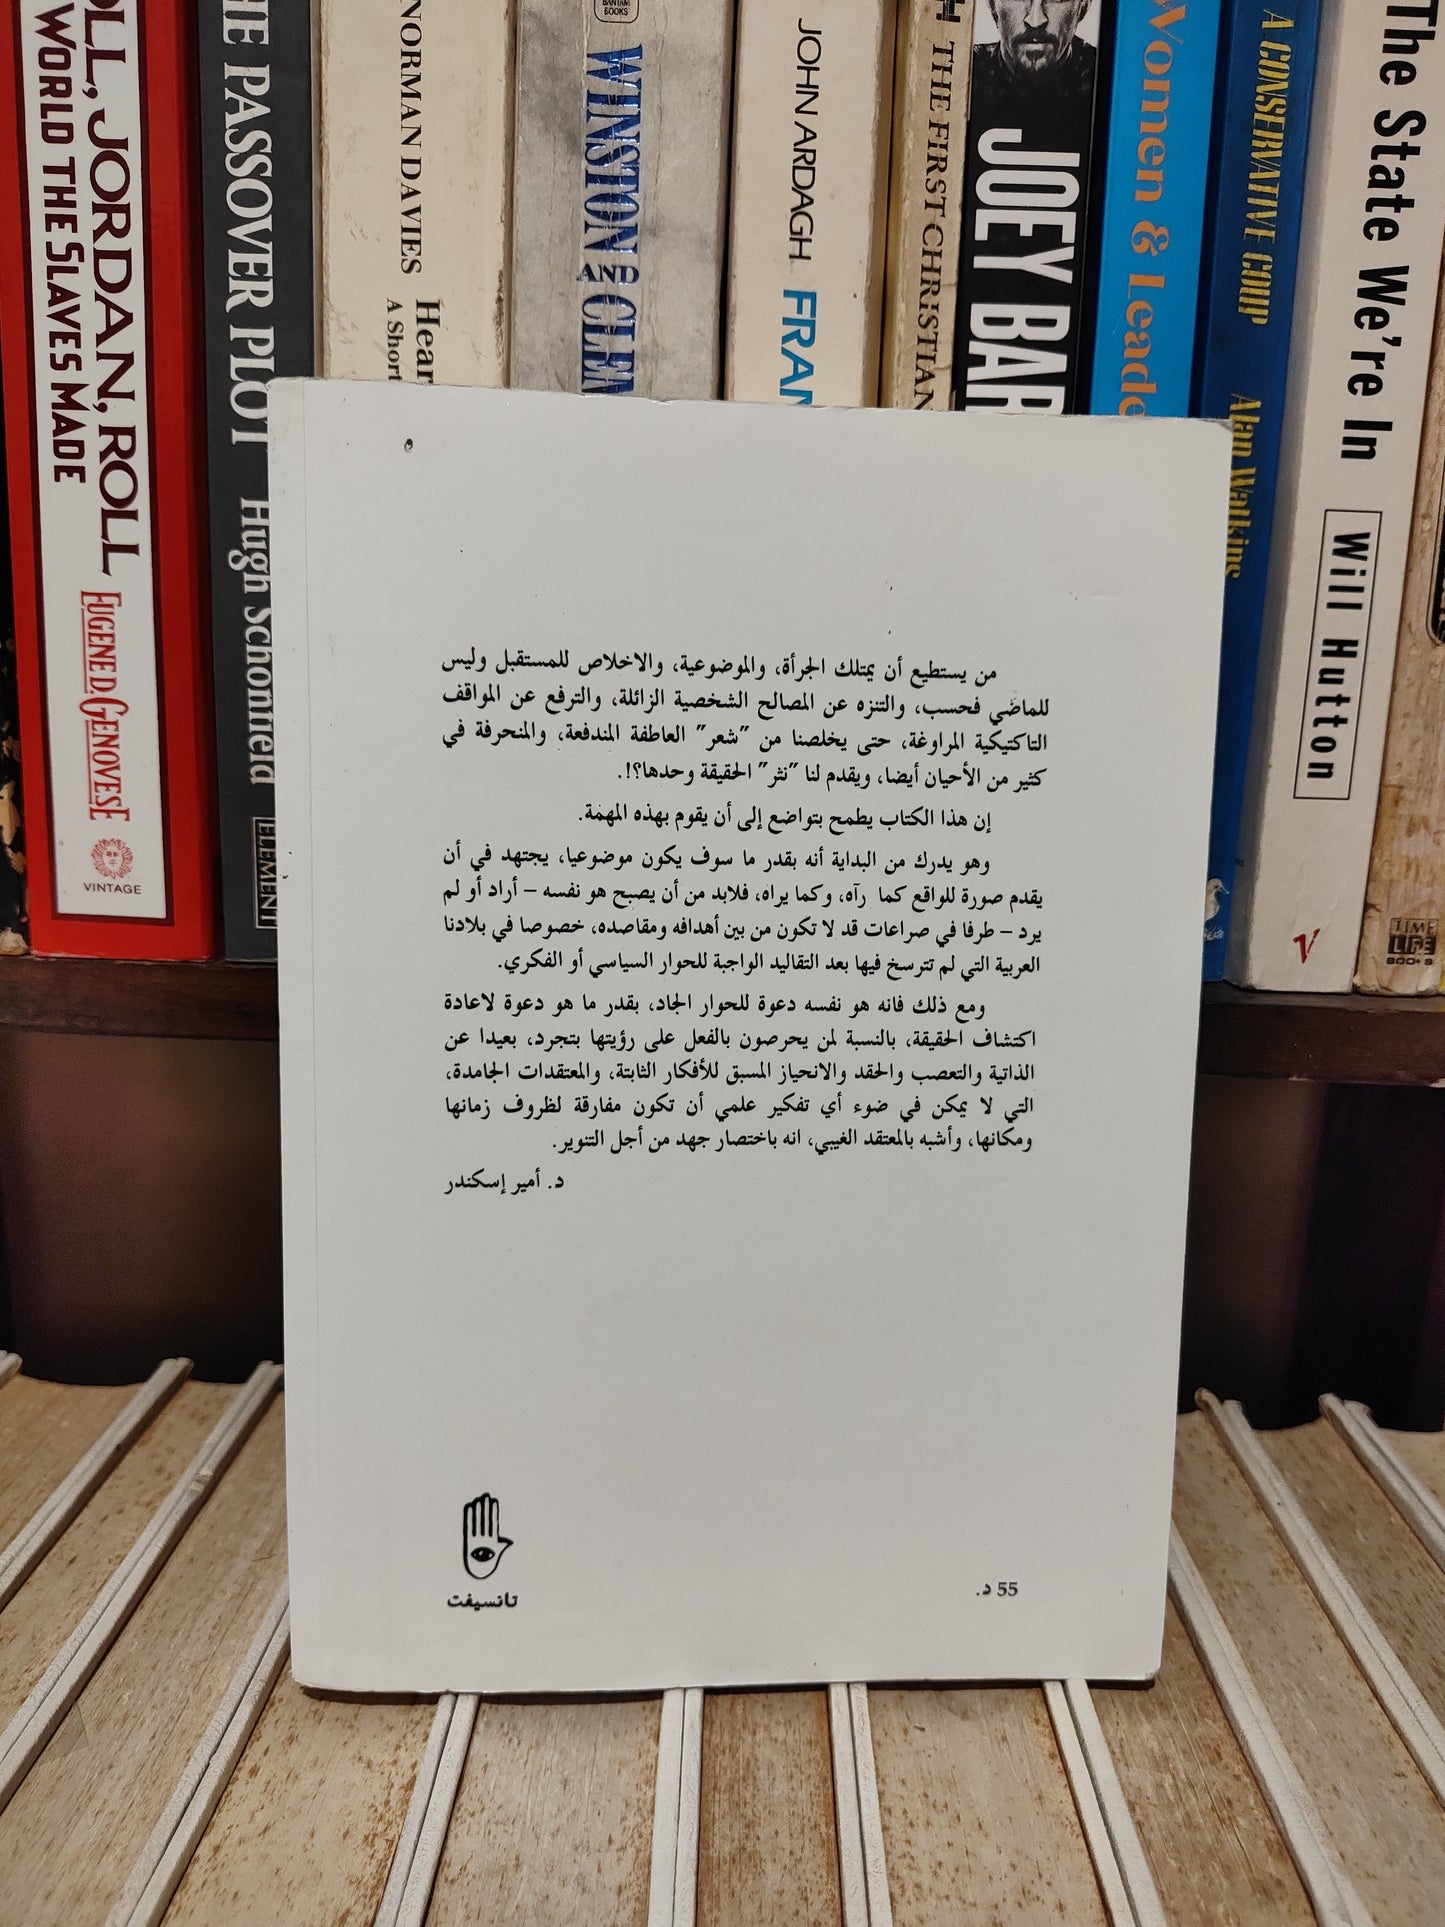 OLL, JORDAN, ROLL
WORLD THE SLAVES MADE
EUGENE D. GENOVESE
VINTAGE
HE PASSOVER PLOT
Hugh Schonfield
ELEMENT
NORMAN DAVIES
Hear
A Short
BANTAM
BOOKS
WINSTON
AND
CLEM
JOHN ARDAGH
FRAN
THE FIRST CHRISTIAN
JOEY BAR
Women & Leade
A CONSERVATIVE COUP
Alan Watkins
The State We're In
Will Hutton
V
TIME
LIFE
BOOKS
من يستطيع أن يمتلك الجرأة، والموضوعية، والاخلاص للمستقبل وليس
للماضي فحسب، والتنزه عن المصالح الشخصية الزائلة، والترفع عن المواقف
التاكتيكية المراوغة، حتى يخلصنا من "شعر" العاطفة المندفعة، والمنحرفة في
كثير من الأحيان أيضا، ويقدم لنا "نثر" الحقيقة وحدها؟!.
إن هذا الكتاب يطمح بتواضع إلى أن يقوم بهذه المهمة.
وهو يدرك من البداية أنه بقدر ما سوف يكون موضوعيا، يجتهد في أن
يقدم صورة للواقع كما رآه، وكما يراه، فلابد من أن يصبح هو نفسه – أراد أو لم
يرد – طرفا في صراعات قد لا تكون من بين أهدافه ومقاصده، خصوصا في بلادنا
العربية التي لم تترسخ فيها بعد التقاليد الواجبة للحوار السياسي أو الفكري.
ومع ذلك فانه هو نفسه دعوة للحوار الجاد، بقدر ما هو دعوة لاعادة
اكتشاف الحقيقة، بالنسبة لمن يحرصون بالفعل على رؤيتها بتجرد، بعيدا عن
الذاتية والتعصب والحقد والانحياز المسبق للأفكار الثابتة، والمعتقدات الجامدة،
التي لا يمكن في ضوء أي تفكير علمي أن تكون مفارقة لظروف زمانها
ومكانها، وأشبه بالمعتقد الغيبي، انه باختصار جهد من أجل التنوير.
د. أمير إسكندر
تانسيفت
55 د.